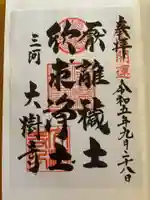 奉拝 開運 令和五年九月二十八日
厭離穢土
欣求浄土
三河 大樹寺